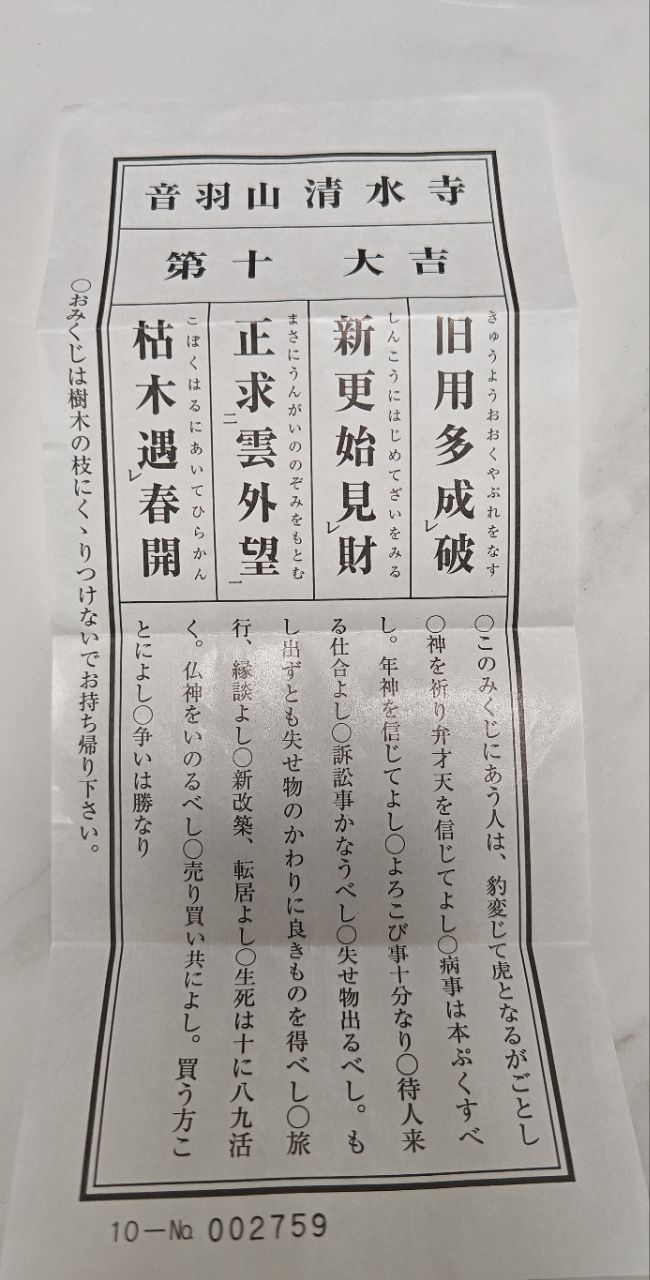 音羽山清水寺
第十 大吉
きゅうようおおくやぶれをなす
旧用多成レ破
しんこうにはじめてざいをみる
新更始見レ財
まさにうんがいののぞみをもとむ
正求二雲外望一
こぼくはるにあいてひらかん
枯木遇レ春開
〇このみくじにあう人は、豹変じて虎となるがごとし
〇神を祈り弁才天を信じてよし〇病事は本ぷくすべ
し。年神を信じてよし〇よろこび事十分なり〇待人来
る仕合よし〇訴訟事かなうべし〇失せ物出るべし。も
し出ずとも失せ物のかわりに良きものを得べし〇旅
行、縁談よし〇新改築、転居よし〇生死は十に八九活
く。仏神をいのるべし〇売り買い共によし。買う方こ
とによし〇争いは勝なり
〇おみくじは樹木の枝にくゝりつけないでお持ち帰り下さい。
10－№ 002759